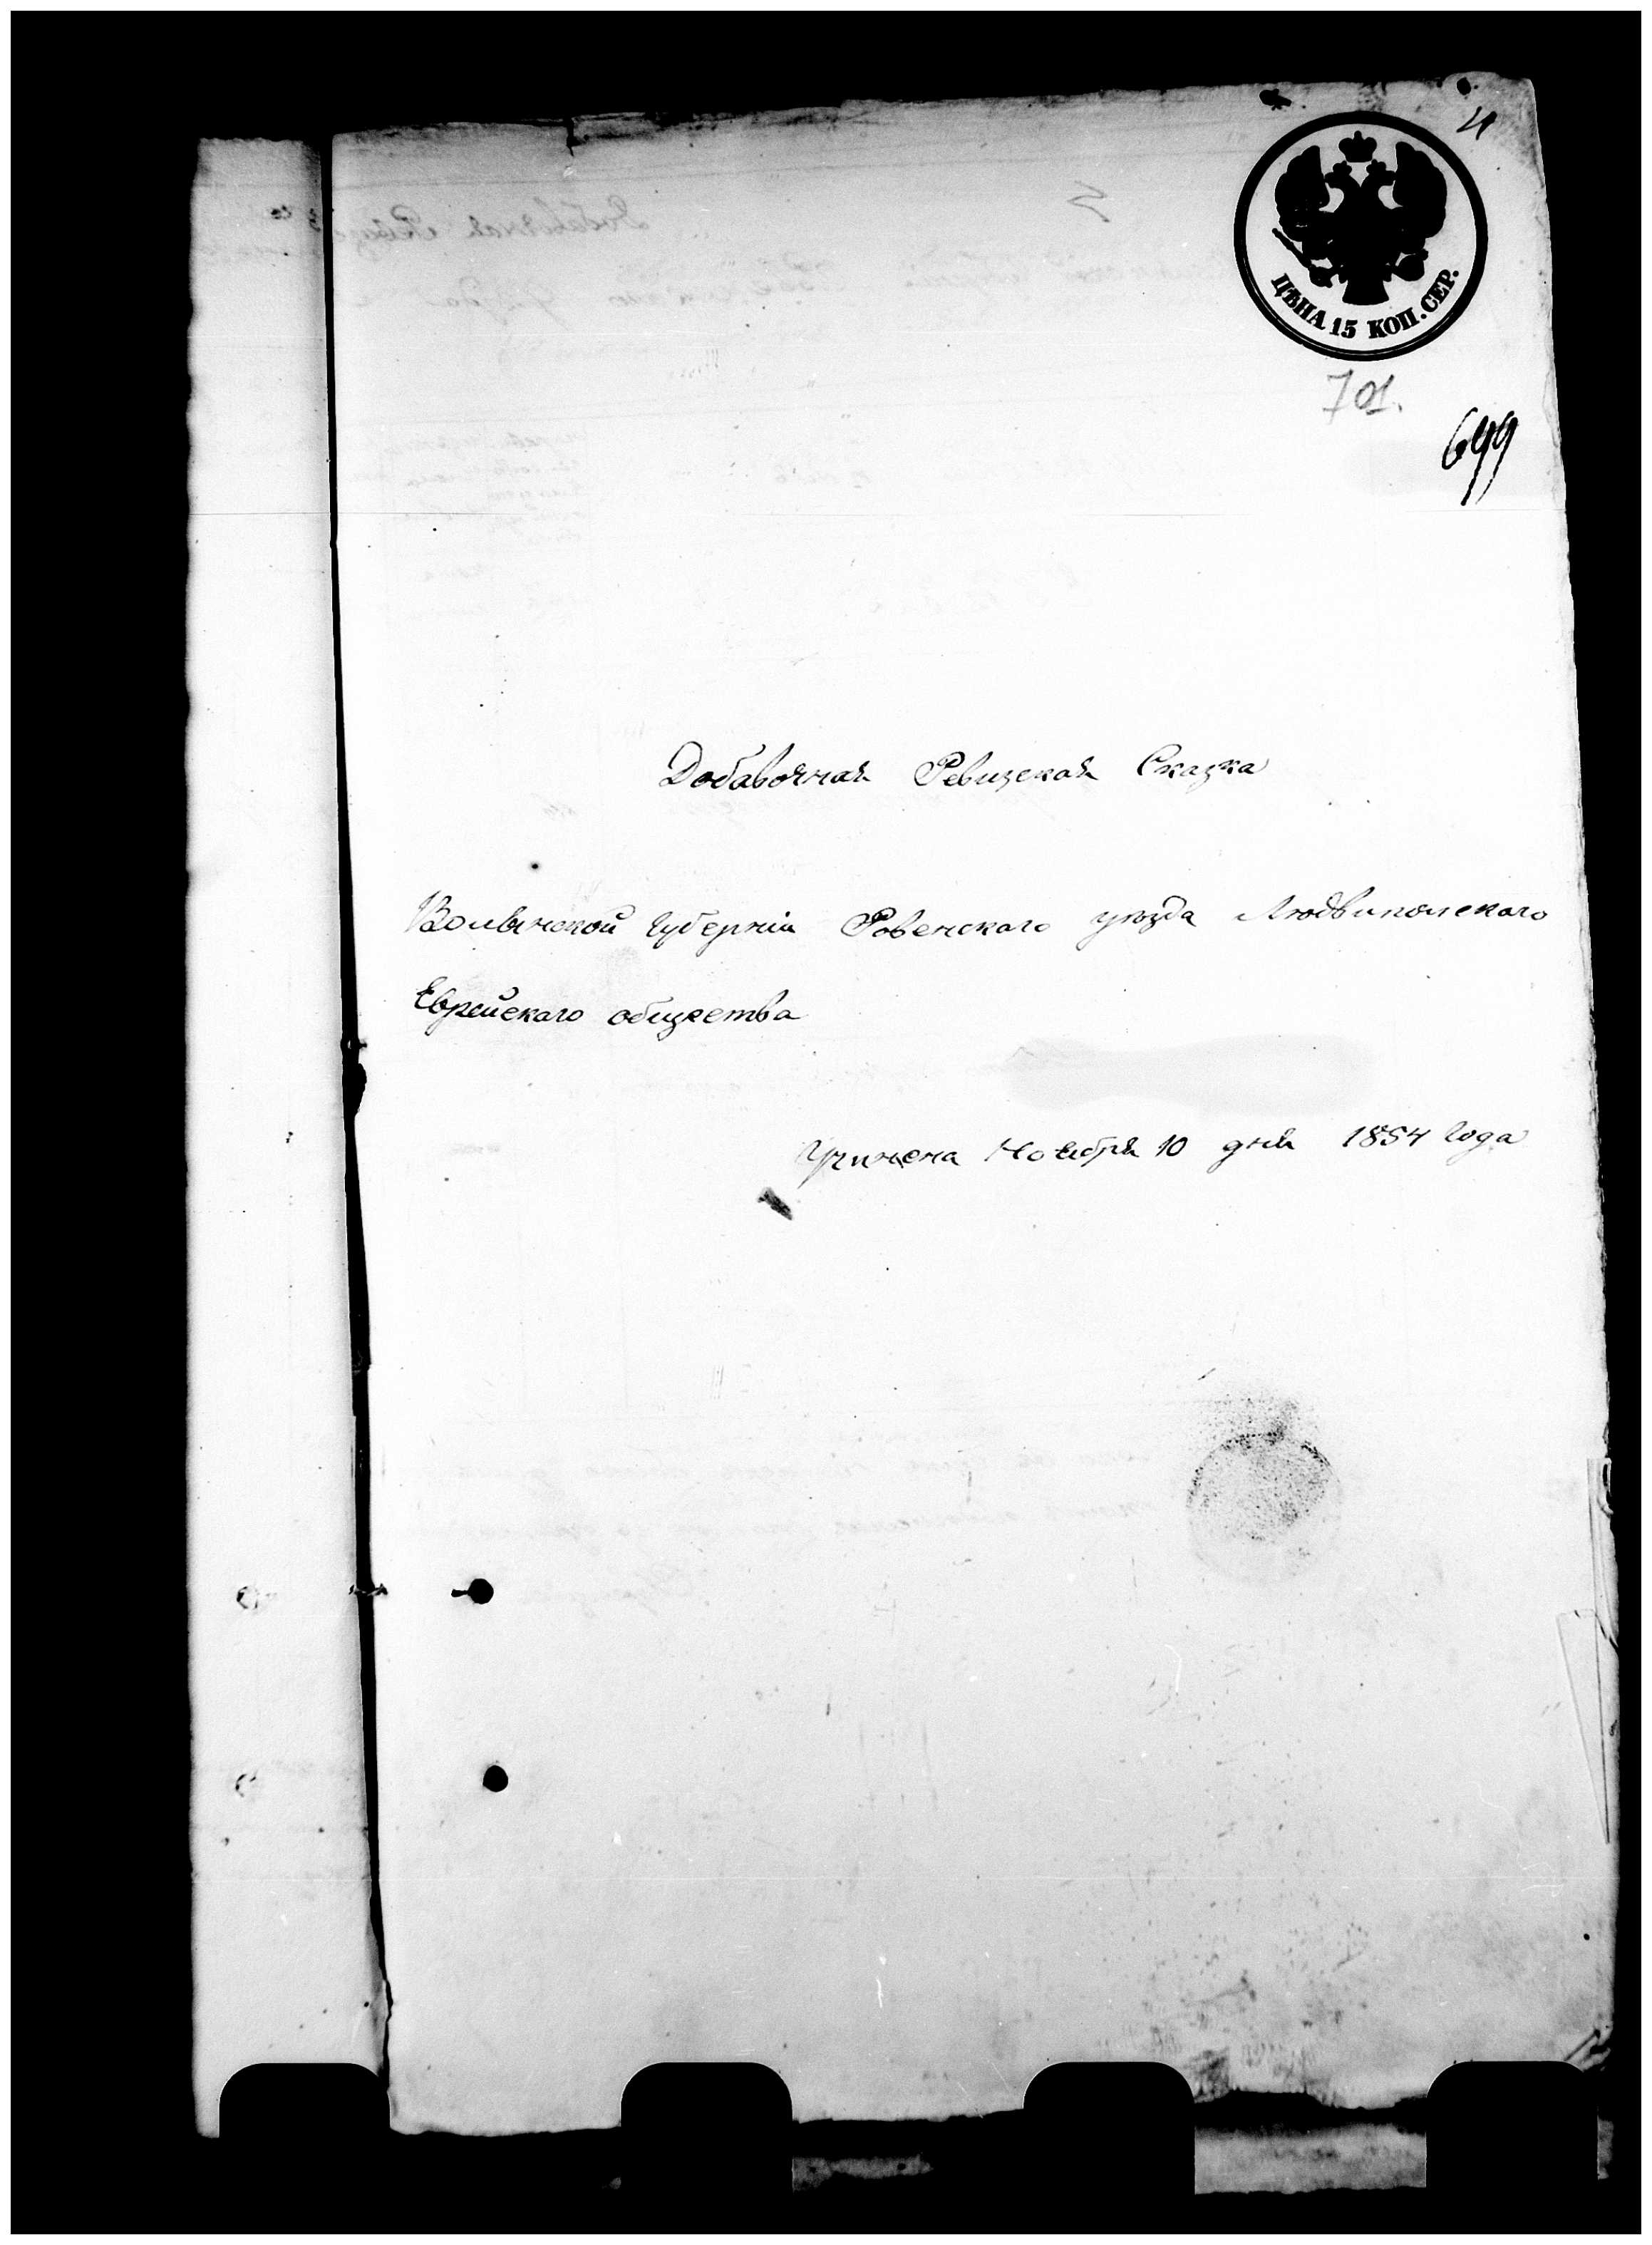 ЦѢНА 15 КОП. СЕР.
701.
699
Добавочная Ревизская Сказка
Волынской Губерніи Ровенского уѣзда Людвипольского
Еврейскаго общества
Учинена Ноября 10 дня 1854 года